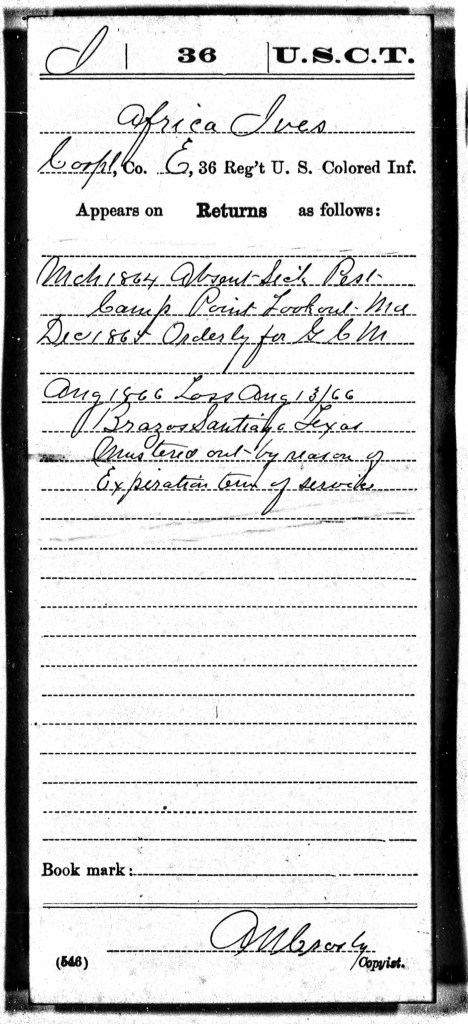 I | 36 | U.S.C.T.
Africa Ives
Corpl, Co. E, 36 Reg't U. S. Colored Inf.
Appears on Returns as follows:
Mch 1864 Absent Sick Post
Camp Point Lookout Md
Dec 1864 Orderly for G C M
Aug 1866 Loss Aug 13/66
Brazos Santiago Texas
Mustered out by reason of
Expiration term of service
Book mark:
Crosby
(546) Copyist.